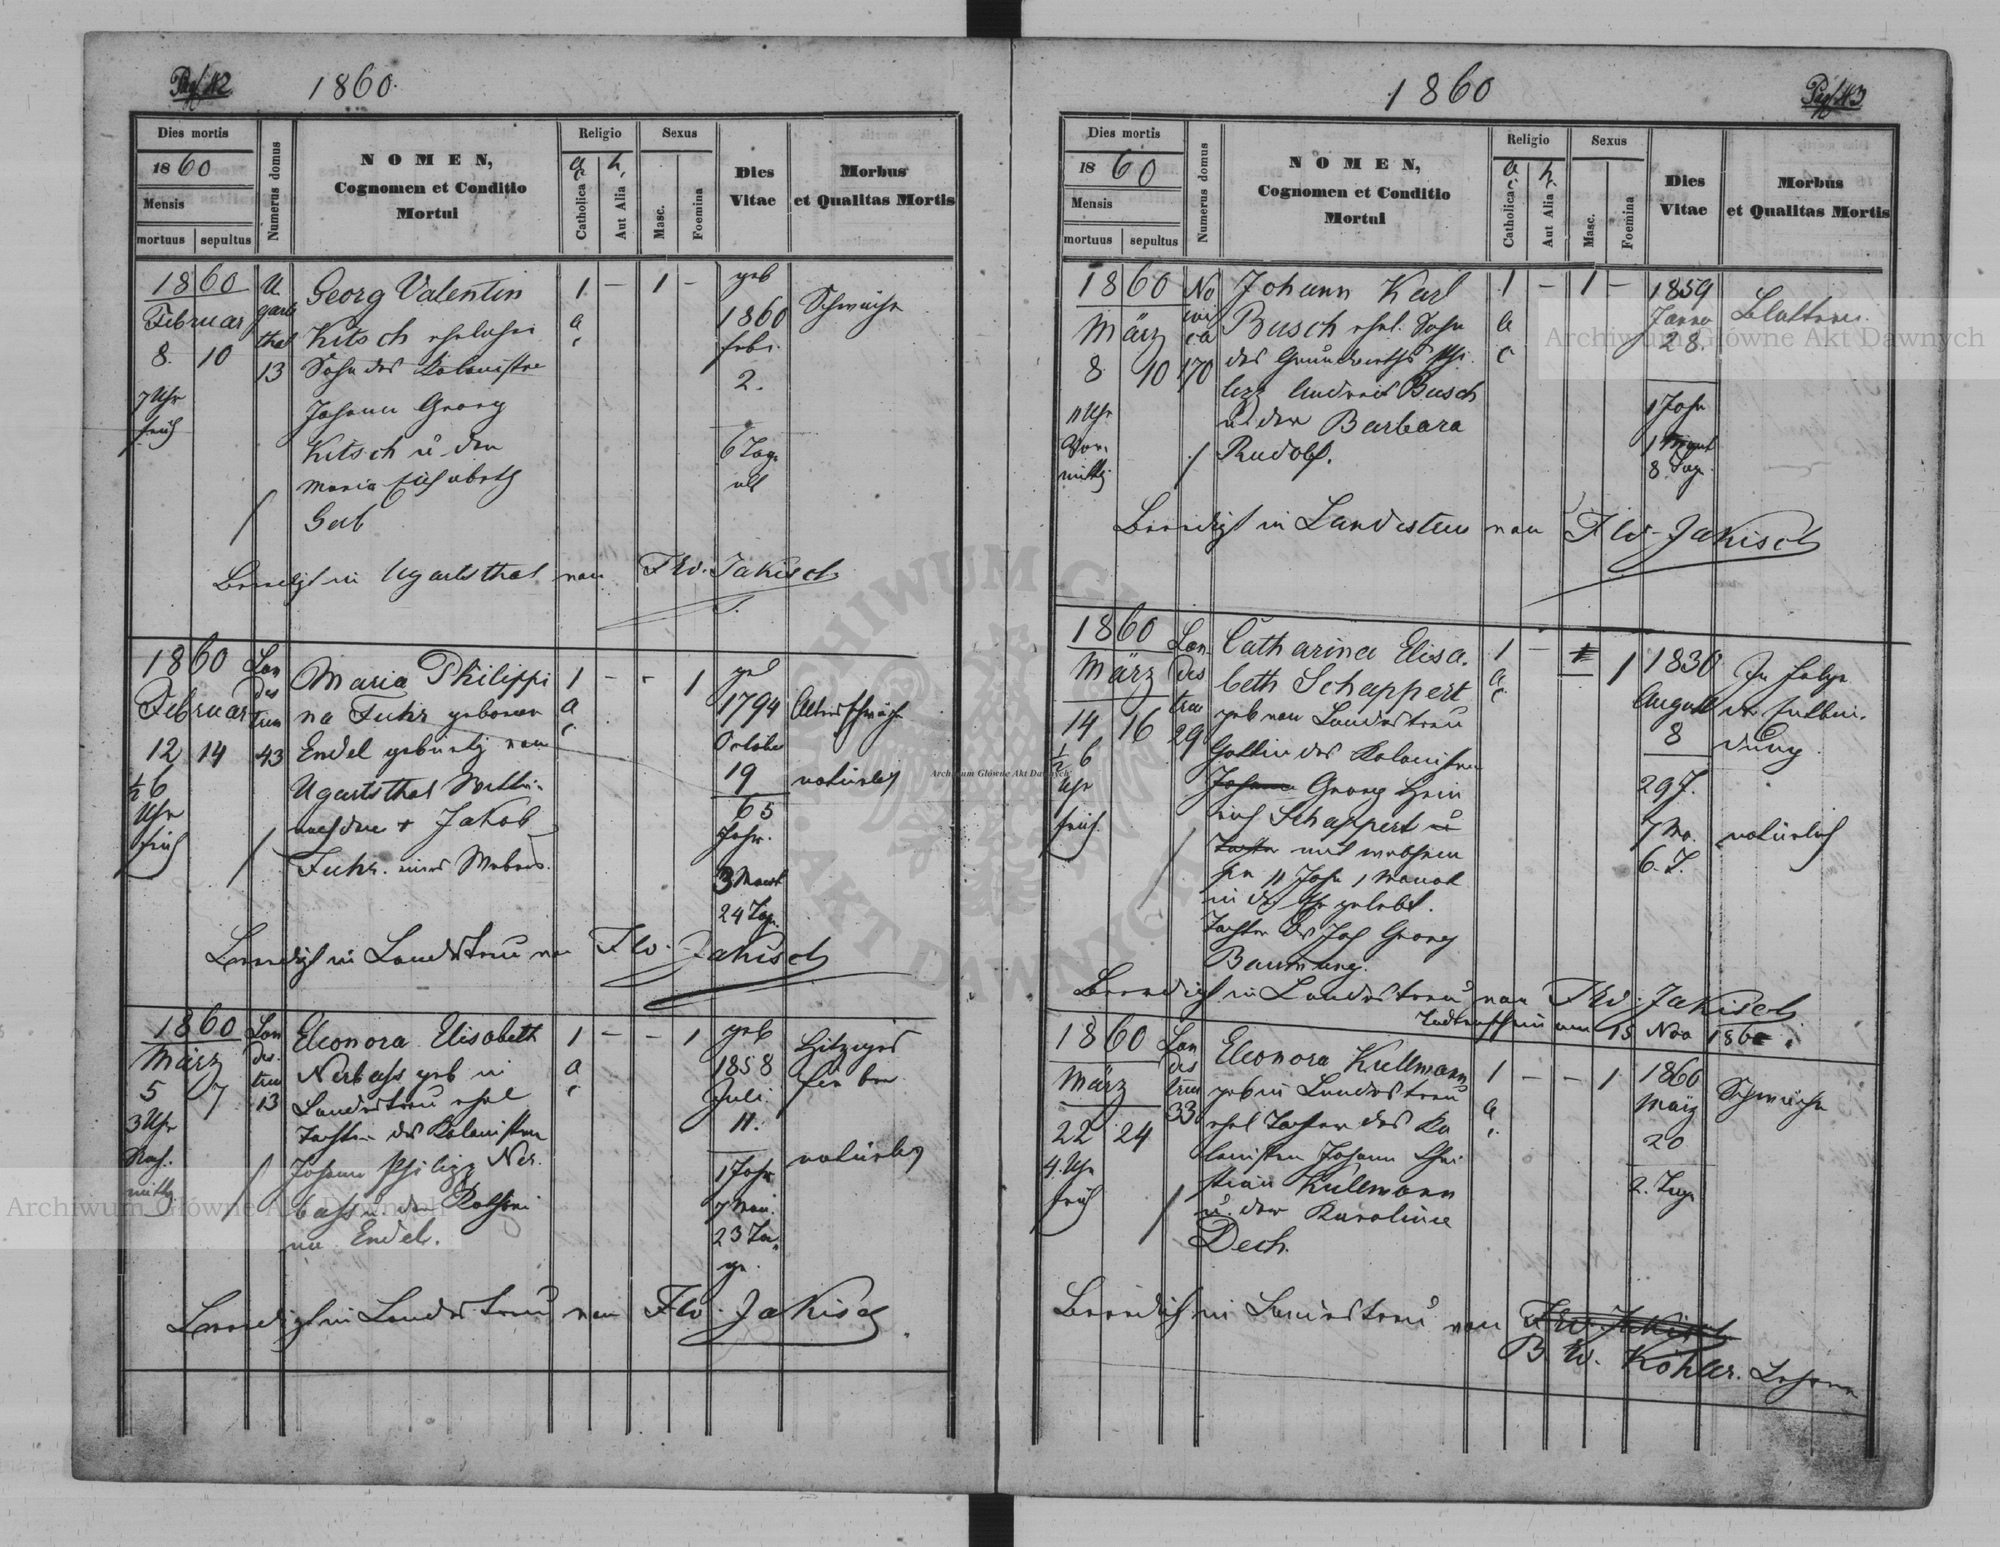 Pag 42
1860.
Dies mortis
1860
Mensis
mortuus sepultus
Numerus domus
NOMEN,
Cognomen et Conditio
Mortui
Religio
a. c. h. c.
Catholica
Aut Alia
Sexus
Masc.
Foemina
Dies
Vitae
Morbus
et Qualitas Mortis
1860
Februar
8. 10
7 Uhr
früh
U
garts
thal
13
Georg Valentin
Kitsch ehelicher
Sohn des Kolonisten
Johann Georg
Kitsch u der
Maria Elisabeth
Gerb
1 – 1 –
a
c
geb
1860
Febr.
2.
6 Tage
alt
Schwäche
Beerdigt in Ugartsthal von Frd. Jakisch
1860
Februar
12 14
½ 6
Uhr
früh
Lan
des
treu
43
Maria Philippi
na Fuhr geborene
Endel gebürtig von
Ugartsthal Wittwe
nach dem + Jakob
Fuhr. eines Webers.
1 – – 1
a
c
geb
1794
October
19
65
Jahr.
3 Monat
24 Tage
Altersschwäche
natürlich
Beerdigt in Landestreu von Frd. Jakisch
1860
März
5 7
3 Uhr
Nach.
mittg
Lan
des
treu
13
Eleonora Elisabeth
Nerbass geb in
Landestreu ehel
Tochter des Kolonisten
Johann Philipp Ner.
bass u der Kathari
na Endel.
1 – – 1
a
c
geb
1858
Juli
11.
1 Jahr
7 Mon.
23 Ta
ge.
Hitziges
Fieber
natürlich
Beerdigt in Landestreu von Frd. Jakisch
Archiwum Główne Akt Dawnych
Pag 43
1860
Dies mortis
1860
Mensis
mortuus sepultus
Numerus domus
NOMEN,
Cognomen et Conditio
Mortui
Religio
a. c. h. c.
Catholica
Aut Alia
Sexus
Masc.
Foemina
Dies
Vitae
Morbus
et Qualitas Mortis
1860
März
8 10
11 Uhr
Vor.
mittg
No
wi
ca
170
Johann Karl
Busch ehel. Sohn
des Grundwirths Phi
lipp Andreas Busch
u. der Barbara
Rudolf.
1 – 1 –
a
c
1859
Janua
28.
1 Jahr
1 Monat
8 Tage
Blattern.
Beerdigt in Landestreu von Frd. Jakisch
1860
März
14 16
½ 6
Uhr
früh.
Lan
des
treu
29
Catharina Elisa.
beth Schappert
geb von Landestreu
Gattin des Kolonisten
Johann Georg Hein
rich Schappert u
Tochter mit welchem
sie 11 Jahr 1 Monat
in der Ehe gelebt.
Tochter des Joh Georg
Baumung.
1 – 1 1
a
c
1830
August
8
29 J.
7 Mo.
6. T.
In Folge
der Entbin.
dung.
natürlich
Beerdigt in Landestreu von Frd. Jakisch
Todtenschein am 15 Nov 1860
1860
März
22 24
4. Uhr
früh
Lan
des
treu
33
Eleonora Kullmann
geb in Landestreu
ehel Tochter des Ko
lonisten Johann Chri
stian Kullmann
u. der Karoline
Dech.
1 – – 1
a
c
1860
März
20
2. Tage
Schwäche
Beerdigt in Landestreu von Frd. Jakisch
B. W. Köhler. Lehrer
Archiwum Główne Akt Dawnych
Archiwum Główne Akt Dawnych
ARCHIWUM GŁÓWNE AKT DAWNYCH